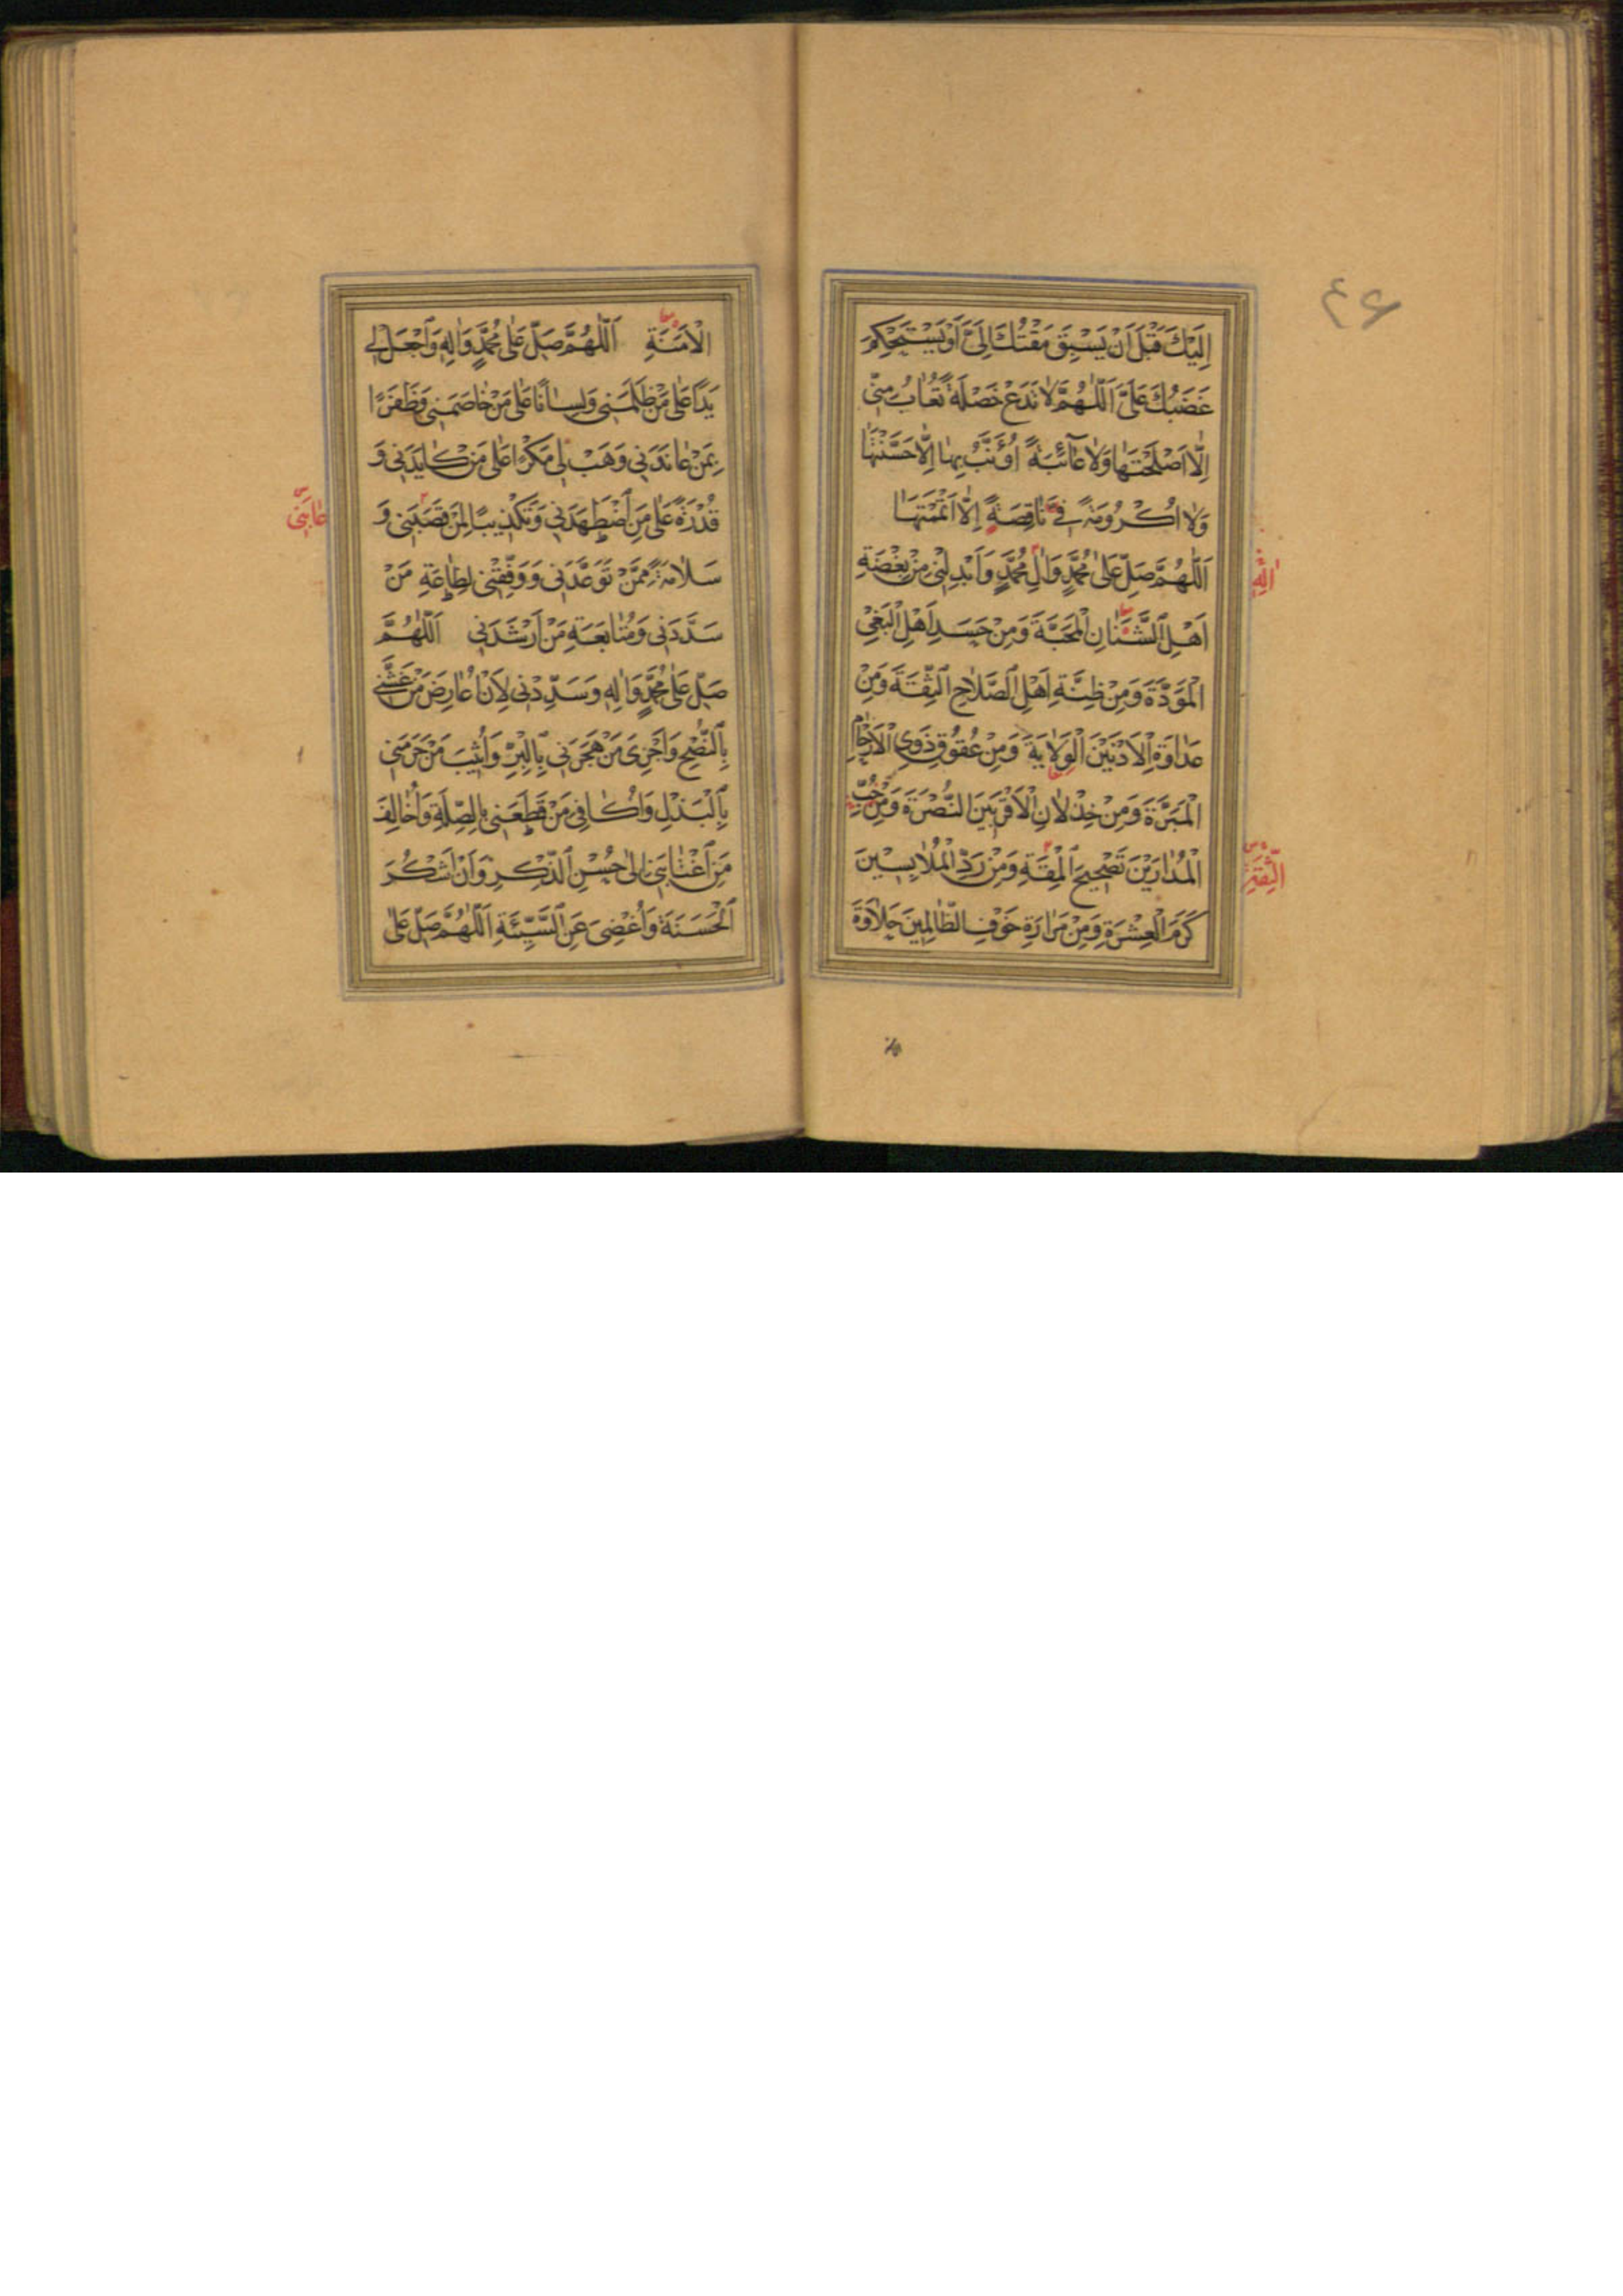 ۴۶
إِلَيْكَ قَبْلَ أَنْ يَسْبِقَ مَقْتُكَ إِلَيَّ أَوْ يَسْتَحْكِمَ
غَضَبُكَ عَلَيَّ اَللّٰهُمَّ لَا تَدَعْ خَصْلَةً تُعَابُ مِنّي
اِلَّا اَصْلَحْتَهَا وَلَا عَآئِبَةً اُؤَنَّبُ بِهَا اِلَّا حَسَّنْتَهَا
وَلَا اُكْرُومَةً فِيَّ نَاقِصَةً اِلَّا اَتْمَمْتَهَا
اَللّٰهُمَّ صَلِّ عَلىٰ مُحَمَّدٍ وَاٰلِ مُحَمَّدٍ وَاَبْدِلْنِي مِنْ بِغْضَةِ
اَهْلِ الشَّنَاٰنِ الْمَحَبَّةَ وَمِنْ حَسَدِ اَهْلِ الْبَغْيِ
الْمَوَدَّةَ وَمِنْ ظِنَّةِ اَهْلِ الصَّلَاحِ الثِّقَةَ وَمِنْ
عَدَاوَةِ الْاَدْنَيْنَ الْوَلَايَةَ وَمِنْ عُقُوقِ ذَوِي الْاَرْحَامِ
الْمَبَرَّةَ وَمِنْ خِذْلَانِ الْاَقْرَبِينَ النُّصْرَةَ وَمِنْ حُبِّ
الْمُدَارِيْنَ تَصْحِيحَ الْمِقَةِ وَمِنْ رَدِّ الْمُلَابِسِينَ
كَرَمَ الْعِشْرَةِ وَمِنْ مَرَارَةِ خَوْفِ الظَّالِمِينَ حَلَاوَةَ
اٰلِهِ
الثِّقَةِ
الْاَمَنَةِ اَللّٰهُمَّ صَلِّ عَلىٰ مُحَمَّدٍ وَاٰلِهِ وَاجْعَلْ لِي
يَدًا عَلىٰ مَنْ ظَلَمَنِي وَلِسَانًا عَلىٰ مَنْ خَاصَمَنِي وَظَفَرًا
بِمَنْ عَانَدَنِي وَهَبْ لِي مَكْرًا عَلىٰ مَنْ كَايَدَنِي وَ
قُدْرَةً عَلىٰ مَنِ اضْطَهَدَنِي وَتَكْذِيبًا لِمَنْ قَصَبَنِي وَ
سَلَامَةً مِمَّنْ تَوَعَّدَنِي وَوَفِّقْنِي لِطَاعَةِ مَنْ
سَدَّدَنِي وَمُتَابَعَةِ مَنْ اَرْشَدَنِي اَللّٰهُمَّ
صَلِّ عَلىٰ مُحَمَّدٍ وَاٰلِهِ وَسَدِّدْنِي لِاَنْ اُعَارِضَ مَنْ غَشَّنِي
بِالنُّصْحِ وَاَجْزِيَ مَنْ هَجَرَنِي بِالْبِرِّ وَاُثِيبَ مَنْ حَرَمَنِي
بِالْبَذْلِ وَاُكَافِيَ مَنْ قَطَعَنِي بِالصِّلَةِ وَاُخَالِفَ
مَنِ اغْتَابَنِي اِلىٰ حُسْنِ الذِّكْرِ وَاَنْ اَشْكُرَ
الْحَسَنَةَ وَاُغْضِيَ عَنِ السَّيِّئَةِ اَللّٰهُمَّ صَلِّ عَلىٰ
عَابَنِي